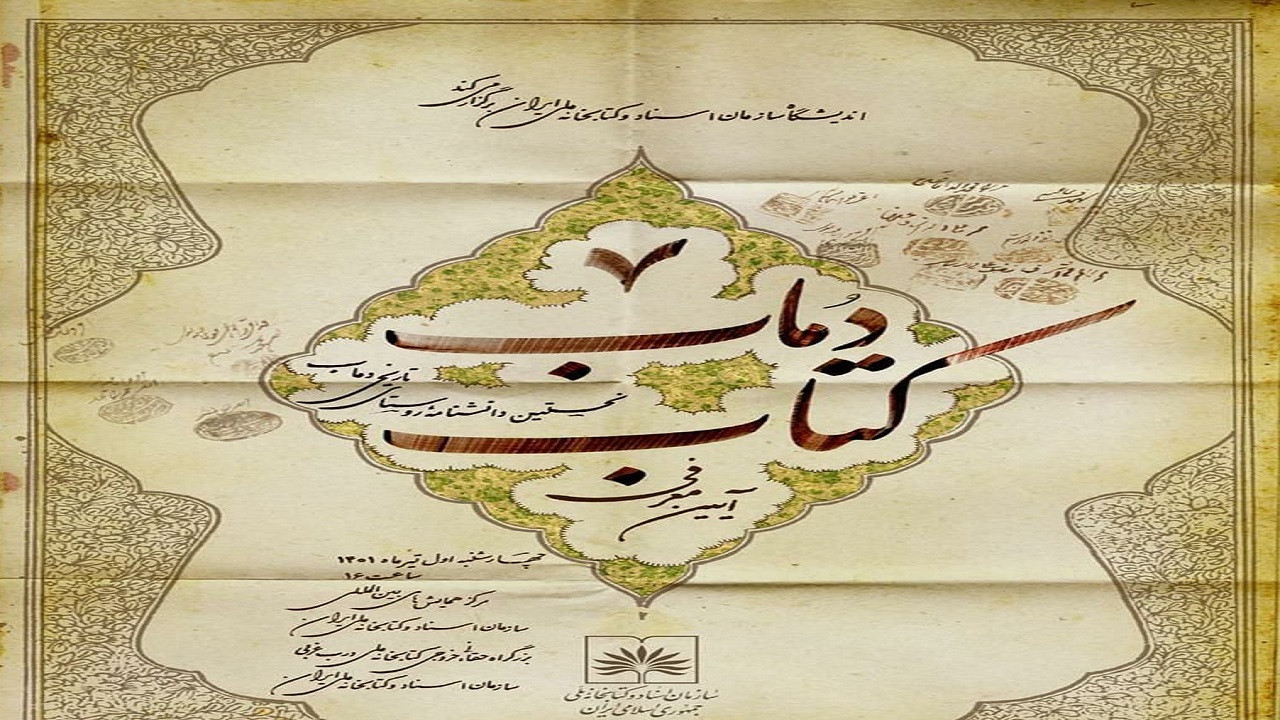 اندیشگاه سازمان اسناد و کتابخانه ملی ایران برگزار می‌کند
۷
کتاب دُماب
نخستین دانشنامهٔ روستای تاریخی دماب
آیین معرفی
چهارشنبه اول تیرماه ۱۴۰۱
ساعت ۱۶
مرکز همایش‌های بین‌المللی
سازمان اسناد و کتابخانه ملی ایران
بزرگراه حقانی خروجی کتابخانه ملی درب غربی
سازمان اسناد و کتابخانه ملی ایران
سازمان اسناد و کتابخانه ملی
جمهوری اسلامی ایران